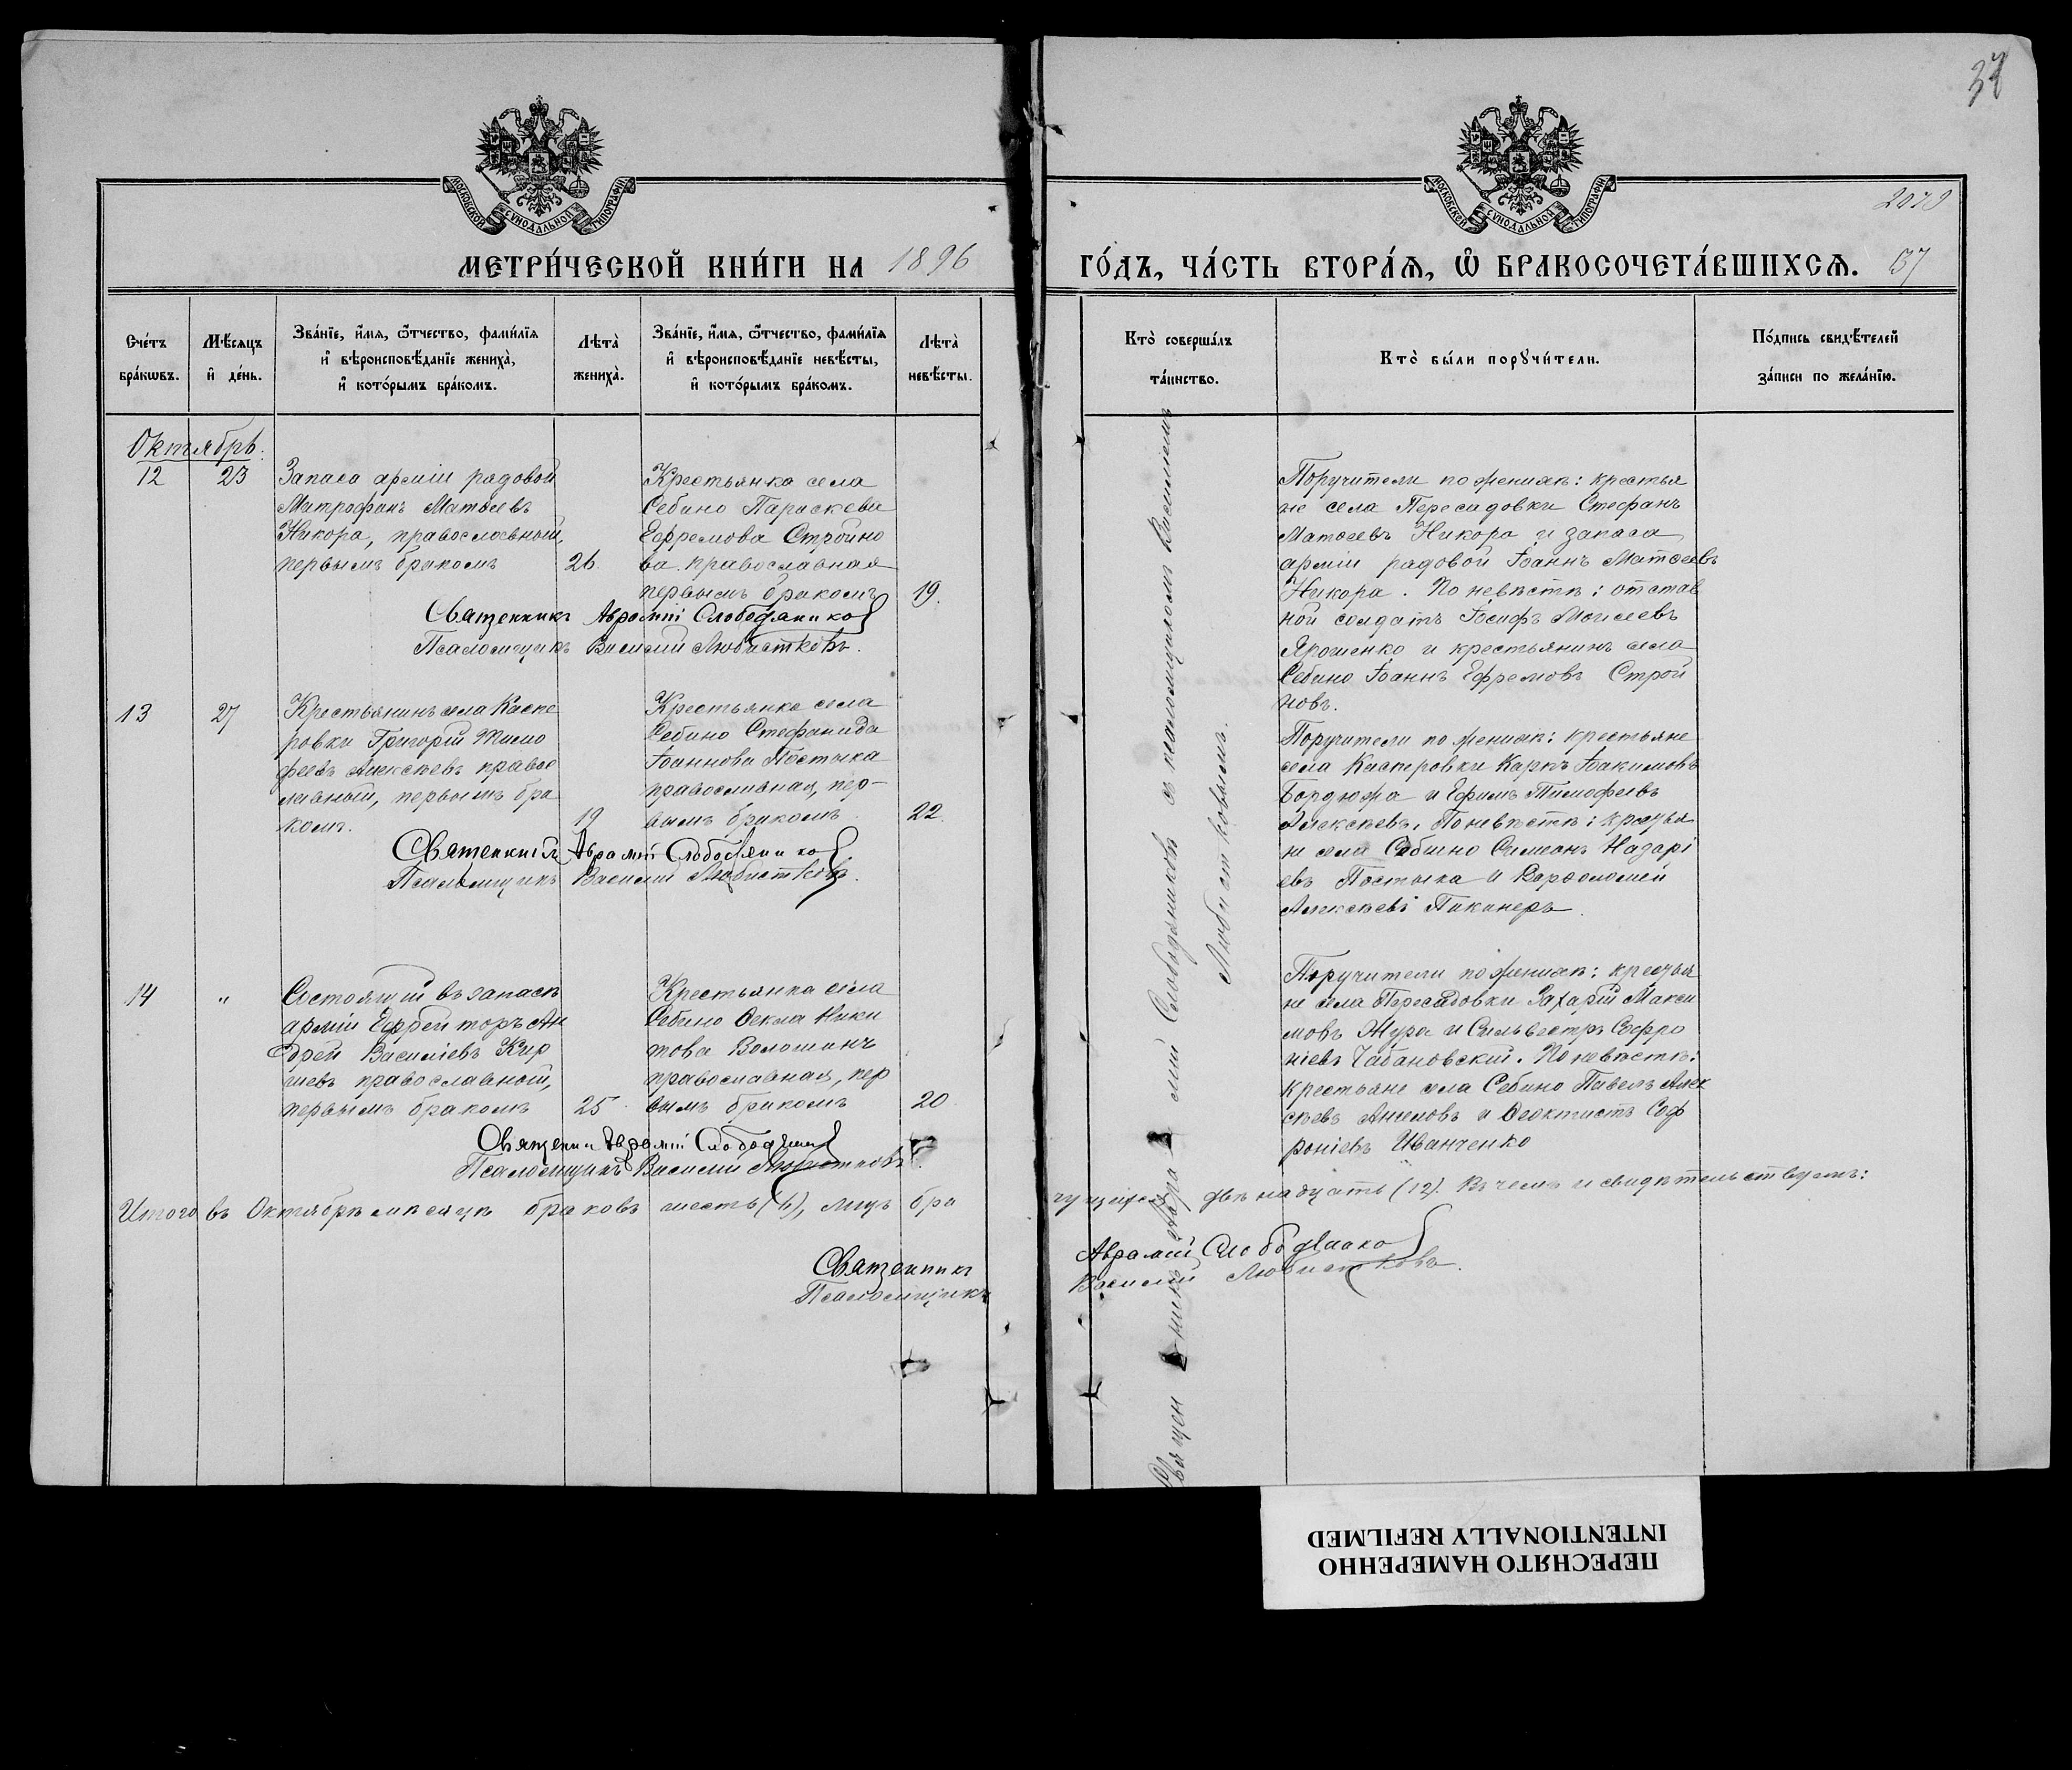 37
МОСКОВСКОЙ СѴНОДАЛЬНОЙ ТИПОГРАФІИ
МОСКОВСКОЙ СѴНОДАЛЬНОЙ ТИПОГРАФІИ
2070
МЕТРИ́ЧЕСКОЙ КНИ́ГИ НА 1896
ГО́ДЪ, ЧА́СТЬ ВТОРА́Ѧ, Ѽ БРАКОСОЧЕТА́ВШИХСѦ. 137
Сче́тъ бра́кѡвъ.
Мѣ́сѧцъ и҆ де́нь.
Зва́нїе, и҆́мѧ, ѻ҆́тчество, фами́лїѧ и҆ вѣроисповѣ́данїе жениха̀, и҆ кото́рымъ бра́комъ.
Лѣ́та̀ жениха̀.
Зва́нїе, и҆́мѧ, ѻ҆́тчество, фами́лїѧ и҆ вѣроисповѣ́данїе невѣ́сты, и҆ кото́рымъ бра́комъ.
Лѣ́та̀ невѣ́сты.
Кто̀ соверша́лъ та́инство.
Кто̀ бы́ли порꙋчи́тели.
По́дпись свидѣ́телей за́писи по жела́нїю.
Октябрь.
12
23
Запаса арміи рядовой
Митрофанъ Матѳеевъ
Никора, православный,
первымъ бракомъ
26
Крестьянка села
Себино Параскева
Ефремова Стройно
ва православная
первымъ бракомъ
19.
Священникъ Аврамій Слободянико
Псаломщикъ Василій Любистковъ.
Поручители по женихѣ: крестья
не села Пересадовки Стефанъ
Матѳеевъ Никора и запаса
арміи рядовой Іоаннъ Матѳеевъ
Никора. По невѣстѣ: отстав
ной солдатъ Іосифъ Моисеевъ
Ярошенко и крестьянинъ села
Себино Іоаннъ Ефремовъ Строй
новъ.
13
27
Крестьянинъ села Каспе
ровки Григорій Тимо
феевъ Алексѣевъ правос
лавный, первымъ бра
комъ.
19
Крестьянка села
Себино Стефанида
Іоаннова Постыка
православная, пер-
вымъ бракомъ
22.
Священникъ Аврамій Слободянико
Псаломщикъ Василій Любистковъ.
Поручители по женихѣ: крестьяне
села Касперовки Карпъ Іоакимовъ
Бордюжа и Ефимъ Тимофеевъ
Алексѣевъ. По невѣстѣ: крестья
не села Себино Симеонъ Назарі
евъ Постыка и Варѳоломей
Алексѣевъ Пиканеръ.
14
"
Состоящій въ запасѣ
арміи Ефрейторъ Ан
дрей Василіевъ Кир
ѣевъ православный,
первымъ бракомъ
25
Крестьянка села
Себино Ѳекла Ники
това Волошинъ
православная, пер
вымъ бракомъ
20
Священни Аврамій Слободяни
Псаломщикъ Василій Любистковъ.
Поручители по женихѣ: крестья
не села Пересадовки Захарій Макси
мовъ Жура и Сильвестръ Софро
ніевъ Чабановскій. По невѣстѣ:
крестьяне села Себино Павелъ Алек
сѣевъ Ангеловъ и Ѳеоктистъ Соф
роніевъ Иванченко
Священникъ Аврамій Слободяниковъ съ псаломщикомъ Василіемъ
Любистковымъ.
Итого въ Октябрѣ мѣсяцѣ браковъ шесть (6), лицъ бра
чущихся двѣнадцать (12). Въ чемъ и свидѣтельствуемъ:
Священникъ Аврамій Слободяако
Псаломщикъ Василій Любистковъ.
ПЕРЕСНЯТО НАМЕРЕННО
INTENTIONALLY REFILMED